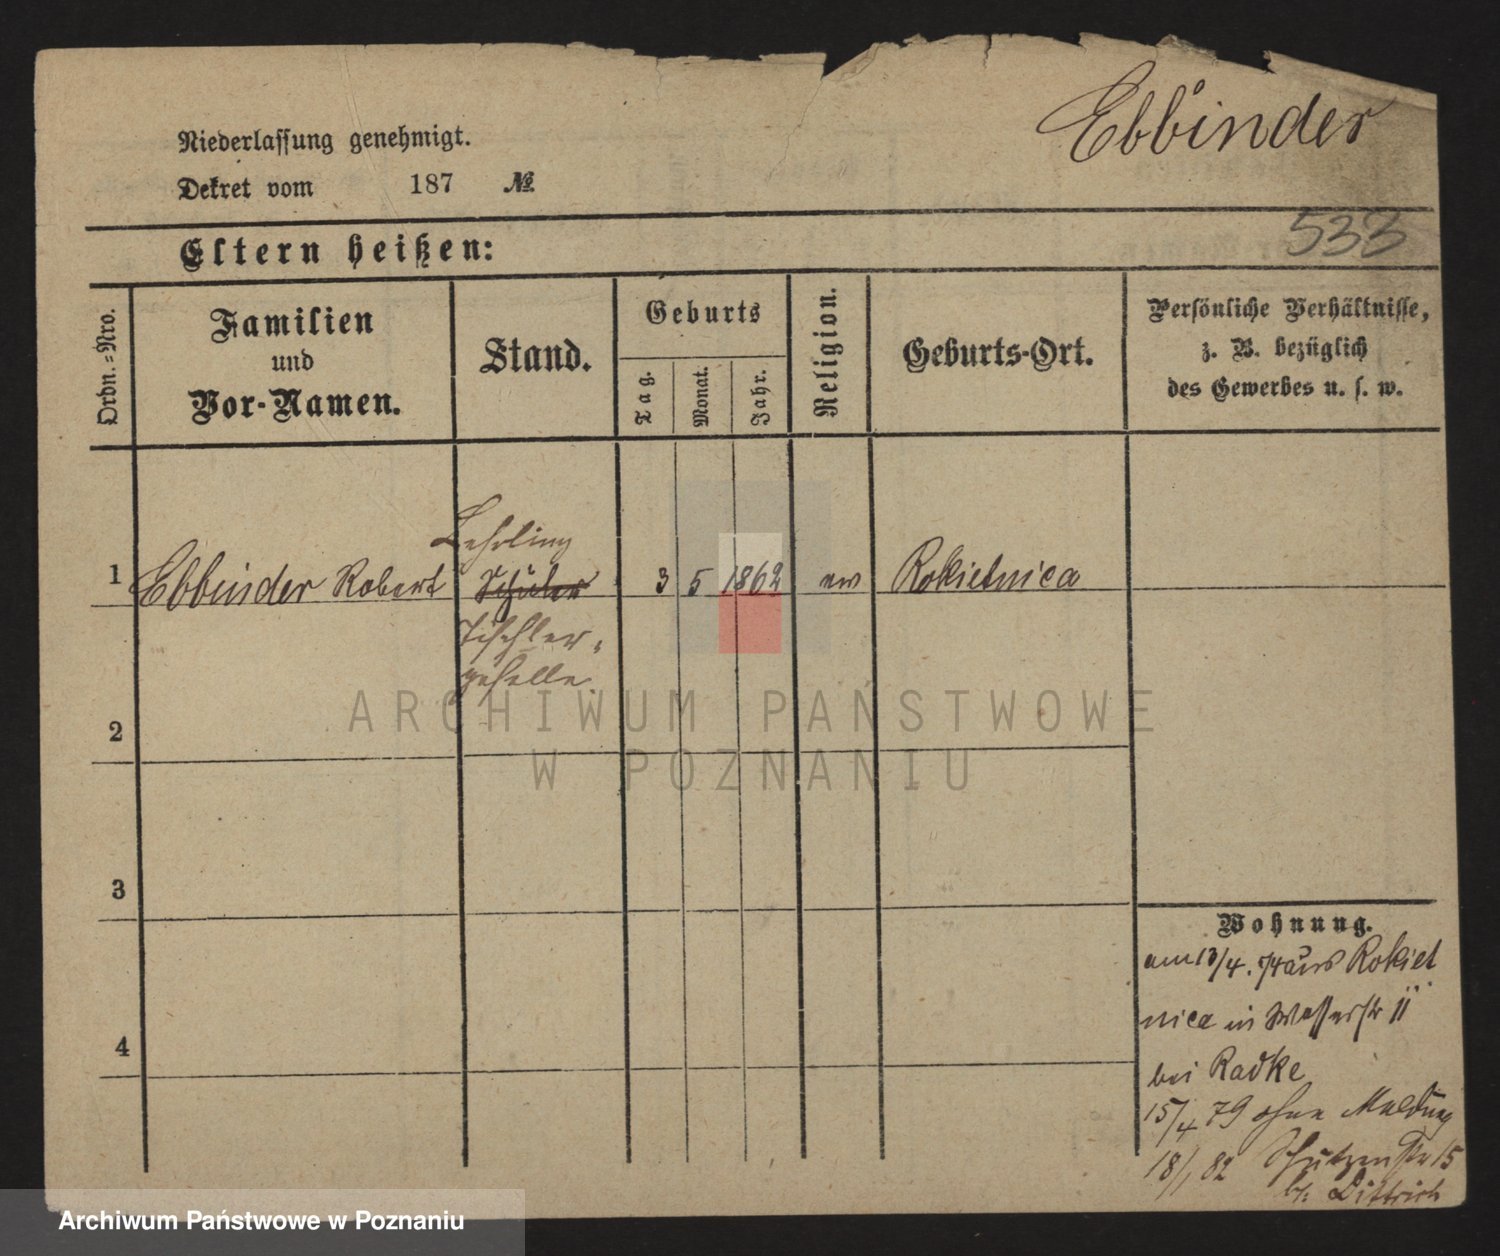 Ebbinder
Niederlassung genehmigt.
Dekret vom 187 №
533
Eltern heißen:
Ordn.-Nro.
Familien
und
Vor-Namen.
Stand.
Geburts
Tag.
Monat.
Jahr.
Religion.
Geburts-Ort.
Persönliche Verhältnisse,
z. B. bezüglich
des Gewerbes u. s. w.
Lehrling
1 Ebbinder Robert Schüler 3 5 1862 ev Rokietnica
Tischler-
geselle.
2
3
4
Wohnung.
am 13/4. 74 aus Rokiet
nica in Wasserstr 11
bei Radke
15/4 79 ohne Meldung
18/1 82 Schützenstr 15
b. Dittrich
ARCHIWUM PAŃSTWOWE
W POZNANIU
Archiwum Państwowe w Poznaniu